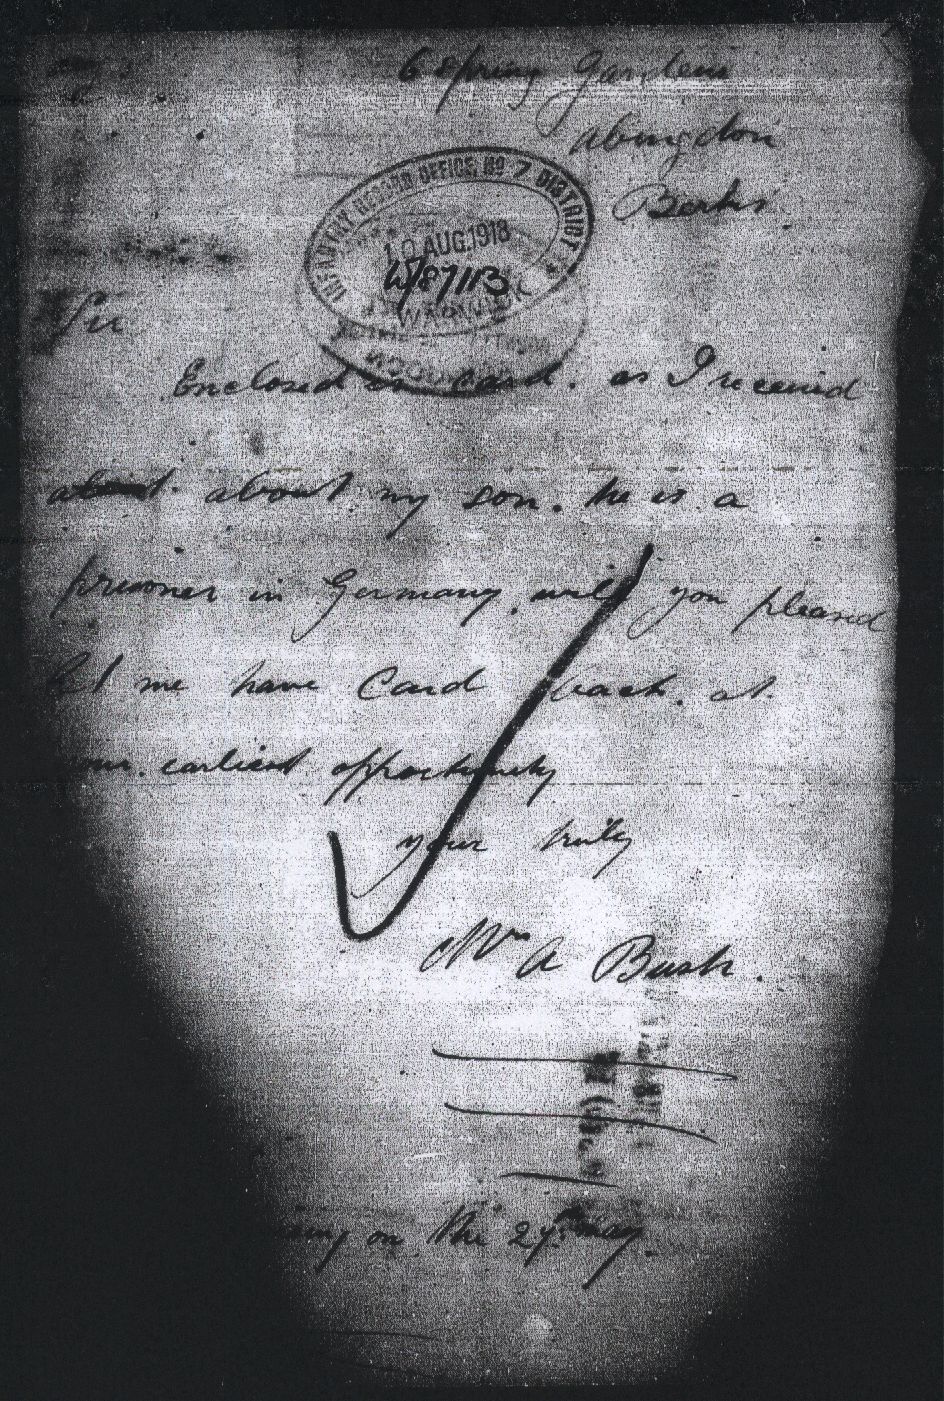 6 Spring Gardens
Abingdon
Berks
INFANTRY RECORD OFFICE, No 7 DISTRICT
10 AUG. 1918
WARWICK
Sir
Enclosed is card. as I received
about my son. he is a
prisoner in Germany. will you please
let me have Card back. at
your earliest opportunity
your truly
Mrs A Bush.
on the 27th May.